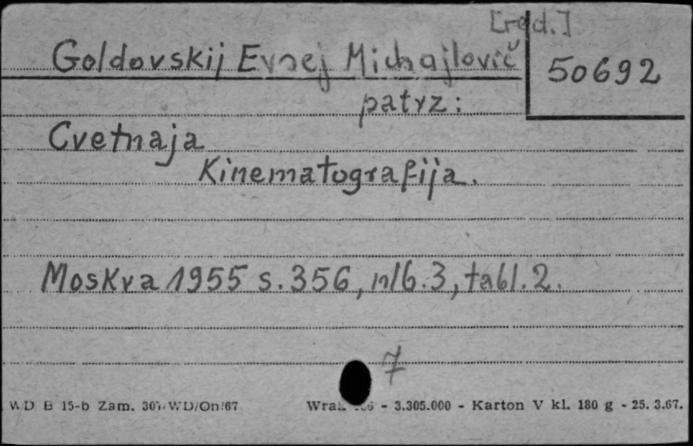 [red.]
Goldovskij Evsej Michajlovič
50692
patrz:
Cvetnaja
Kinematografija.
Moskva 1955 s. 356, nlb. 3, tabl. 2.
7
WD B 15-b Zam. WD/On/67 - 3.305.000 - Karton V kl. 180 g - 25. 3.67.